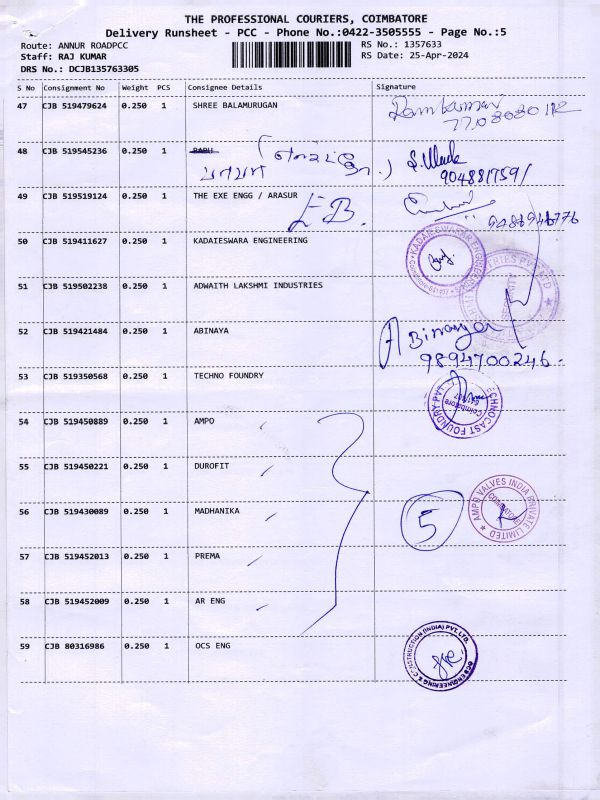 THE PROFESSIONAL COURIERS, COIMBATORE
Delivery Runsheet - PCC - Phone No.:0422-3505555 - Page No.:5
Route: ANNUR ROADPCC
RS No.: 1357633
Staff: RAJ KUMAR
RS Date: 25-Apr-2024
DRS No.: DCJB135763305
S No Consignment No Weight PCS Consignee Details Signature
47 CJB 519479624 0.250 1 SHREE BALAMURUGAN
48 CJB 519545236 0.250 1 BABU
9048817591
49 CJB 519519124 0.250 1 THE EXE ENGG / ARASUR
EB.
50 CJB 519411627 0.250 1 KADAIESWARA ENGINEERING
51 CJB 519502238 0.250 1 ADWAITH LAKSHMI INDUSTRIES
52 CJB 519421484 0.250 1 ABINAYA
Abinaya
9894700246.
53 CJB 519350568 0.250 1 TECHNO FOUNDRY
54 CJB 519450889 0.250 1 AMPO
55 CJB 519450221 0.250 1 DUROFIT
5
AMPO VALVES INDIA PRIVATE LIMITED
COIMBATORE
56 CJB 519430089 0.250 1 MADHANIKA
57 CJB 519452013 0.250 1 PREMA
58 CJB 519452009 0.250 1 AR ENG
59 CJB 80316986 0.250 1 OCS ENG